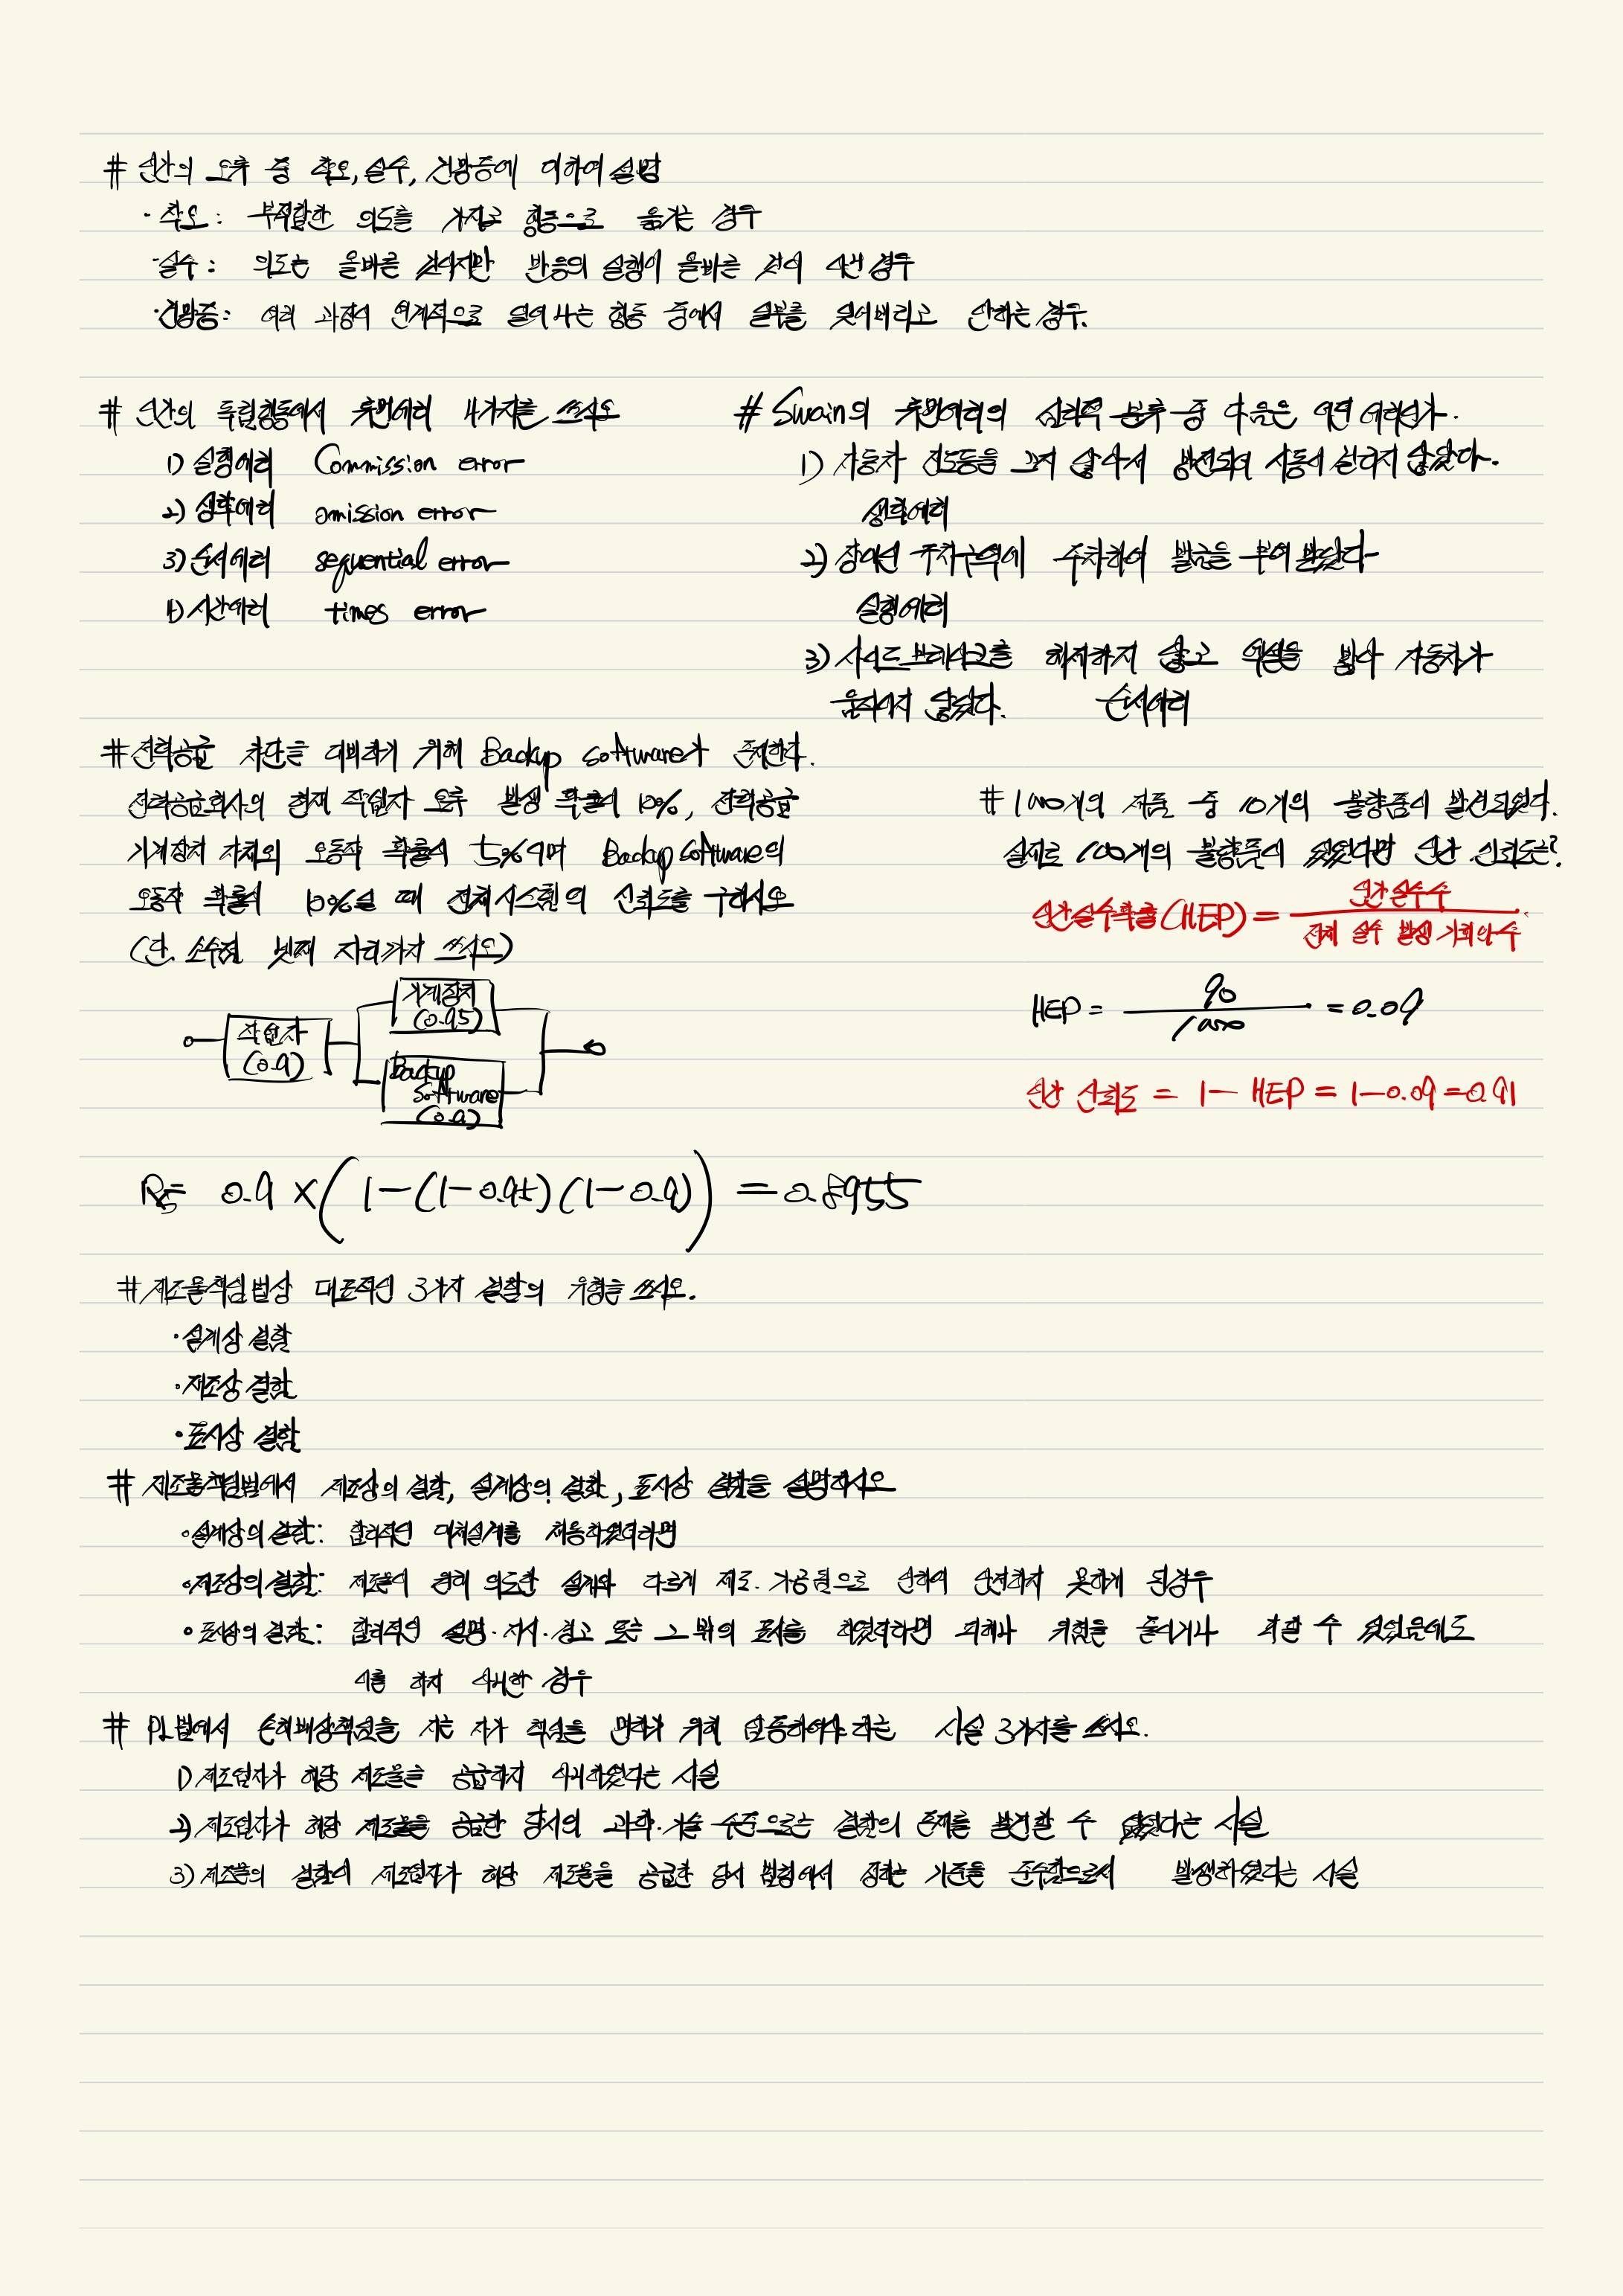 # 인간의 오류 중 착오, 실수, 건망증에 대하여 설명
· 착오 : 부적합한 의도를 가지고 행동으로 옮기는 경우
· 실수 : 의도는 올바른 것이지만 반응의 실행이 올바른 것이 아닌 경우
· 건망증 : 여러 과정이 연계적으로 일어나는 행동 중에서 일부를 잊어버리고 안하는 경우.
# 인간의 독립행동에서 휴먼에러 4가지를 쓰시오
1) 실행에러 Commission error
2) 생략에러 omission error
3) 순서에러 sequential error
4) 시간에러 times error
# Swain의 휴먼에러의 심리적 분류 중 다음은 어떤 에러인가.
1) 자동차 전조등을 끄지 않아서 방전되어 시동이 걸리지 않았다.
생략에러
2) 장애인 주차구역에 주차하여 벌금을 부여 받았다
실행에러
3) 사이드브레이크를 해제하지 않고 악셀을 밟아 자동차가
움직이지 않았다. 순서에러
# 전력공급 차단을 대비하기 위해 Backup software가 존재한다.
전력공급회사의 현재 작업자 오류 발생 확률이 10%, 전력공급
기계장치 자체의 오동작 확률이 5%이며 Backup software의
오동작 확률이 10%일 때 전체시스템의 신뢰도를 구하시오
(단. 소수점 넷째 자리까지 쓰시오)
작업자
(0.9)
기계장치
(0.95)
Backup
Software
(0.9)
Rs = 0.9 × (1-(1-0.95)(1-0.9)) = 0.8955
# 1000개의 제품 중 10개의 불량품이 발견되었다.
실제로 100개의 불량품이 있었다면 인간 신뢰도는?
인간실수확률(HEP) = 인간실수수 / 전체 실수 발생 기회의 수
HEP = 90 / 1000 = 0.09
인간 신뢰도 = 1 - HEP = 1-0.09 = 0.91
# 제조물책임법상 대표적인 3가지 결함의 유형을 쓰시오.
· 설계상 결함
· 제조상 결함
· 표시상 결함
# 제조물책임법에서 제조상의 결함, 설계상의 결함, 표시상 결함을 설명하시오
· 설계상의 결함 : 합리적인 대체설계를 채용하였더라면
· 제조상의 결함 : 제조물이 원래 의도한 설계와 다르게 제조·가공됨으로 인하여 안전하지 못하게 된경우
· 표시상의 결함 : 합리적인 설명·지시·경고 또는 그 밖의 표시를 하였더라면 피해나 위험을 줄이거나 피할 수 있었음에도
이를 하지 아니한 경우
# PL법에서 손해배상책임을 지는 자가 책임을 면하기 위해 입증하여야 하는 사실 3가지를 쓰시오.
1) 제조업자가 해당 제조물을 공급하지 아니하였다는 사실
2) 제조업자가 해당 제조물을 공급한 당시의 과학·기술 수준으로는 결함의 존재를 발견할 수 없었다는 사실
3) 제조물의 결함이 제조업자가 해당 제조물을 공급한 당시 법령에서 정하는 기준을 준수함으로써 발생하였다는 사실